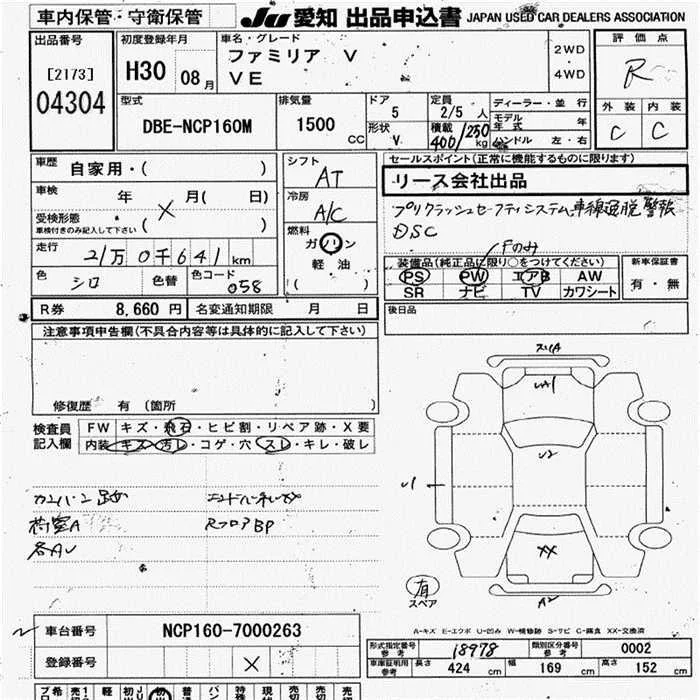 車内保管・守衛保管
JU 愛知 出品申込書 JAPAN USED CAR DEALERS ASSOCIATION
出品番号
[2173]
04304
初度登録年月
H30 08 月
車名・グレード
ファミリア V
VE
2WD
4WD
評価点
R
外装 内装
C C
型式
DBE-NCP160M
排気量
1500 CC
ドア
5
形状
V
定員
2/5 人
積載
400/250 kg
ディーラー・並行
モデル年式 年
ハンドル 左・右
車歴
自家用・( )
車検 年 月( 日)
受検形態
車検付きのみ記入して下さい ( )
走行
21万 0千641 km
色
シロ
色替
色コード
058
シフト
AT
冷房
A/C
燃料
ガソリン
軽・油
( )
セールスポイント(正常に機能するものに限ります)
リース会社出品
プリクラッシュセーフティシステム 車線逸脱警報
DSC
Fのみ
装備品(純正品に限り○をつけてください)
PS PW エアB AW
SR ナビ TV カワシート
新車保証書
有・無
後日品
R券 8,660 円
名変通知期限 月 日
注意事項申告欄(不具合内容等は具体的に記入して下さい)
修復歴 有 (箇所 )
検査員記入欄
FW キズ・飛石・ヒビ割・リペア跡・X要
内装 キズ・汚レ・コゲ・穴・スレ・キレ・破レ
カンバン跡
荷室A
RフロアBP
各AU
スリA
UA1
U2
U1
XX
A2
有
スペア
A-キズ E-エクボ U-凹み W-補修跡 S-サビ C-腐食 XX-交換済
車台番号 NCP160-7000263
登録番号 X
形式指定番号
参考
18978
類別区分番号
参考
0002
車庫証明用
参考
長さ 424 cm 幅 169 cm 高さ 152 cm